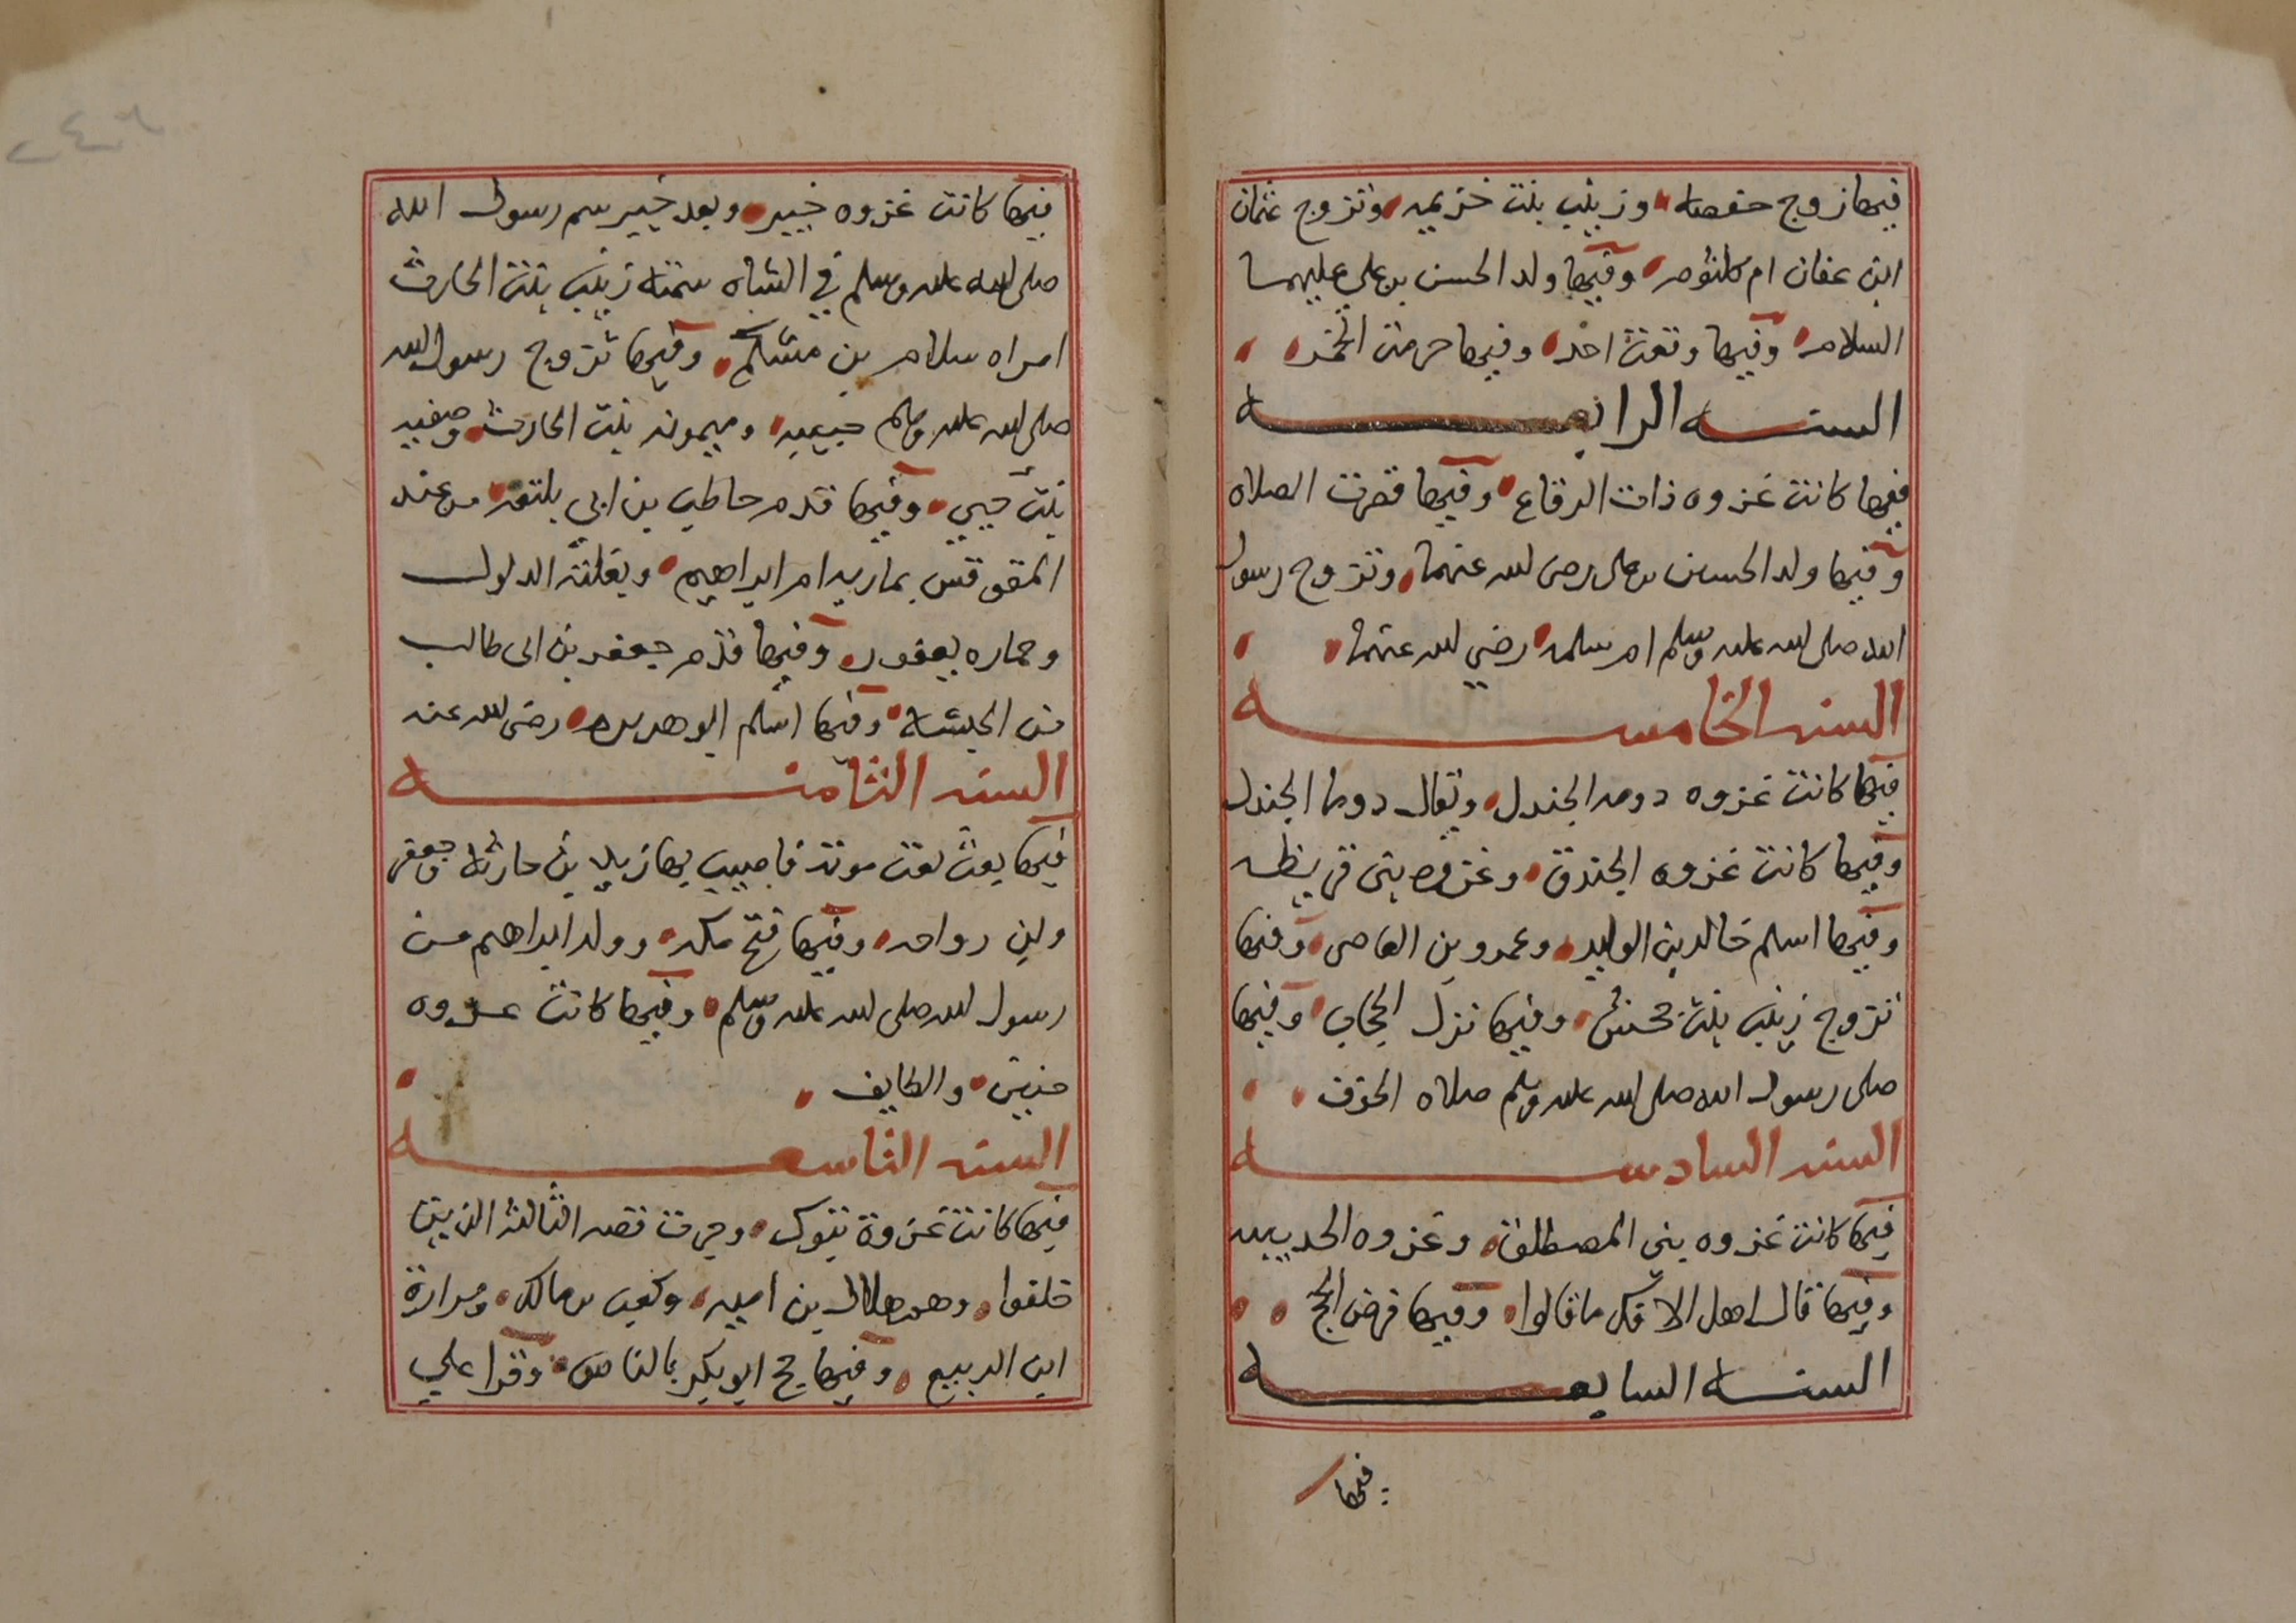 فيها زوج حفصه وزينب بنت خزيمه وتزوج عثمان
ابن عفان ام كلثوم وفيها ولد الحسن بن علي عليهما
السلام وفيها وقعت احد وفيها حرمت الخمر
السنه الرابعه
فيها كانت غزوه ذات الرقاع وفيها قصرت الصلاه
وفيها ولد الحسين بن على رضى لله عنهما وتزوج رسول
الله صلى لله عليه وسلم ام سلمه رضي لله عنها
السنه الخامسه
فيها كانت غزوه دومه الجندل ويقال دوما الجندل
وفيها كانت غزوه الخندق وغزوه بنى قريظه
وفيها اسلم خالد بن الوليد وعمرو بن العاص وفيها
تزوج زينب بنت جحش وفيها نزل الحجاب وفيها
صلى رسول الله صلى لله عليه وسلم صلاه الخوف
السنه السادسه
فيها كانت غزوه بنى المصطلق وغزوه الحديبيه
وفيها قال اهل الافك ما قالوا وفيها فرض الحج
السنه السابعه
فيها
فيها كانت غزوه خيبر وبعد خيبر سم رسول الله
صلى لله عليه وسلم في الشاه سمته زينب بنت الحارث
امراه سلام بن مشكم وفيها تزوج رسول لله
صلى لله عليه وسلم حبيبه وميمونه بنت الحارث وصفيه
بنت حيي وفيها قدم حاطب بن ابي بلتعه من عند
المقوقس بماريه ام ابراهيم وبغلته الدلول
وحماره يعفور وفيها قدم جعفر بن ابى طالب
من الحبشه وفيها اسلم ابو هريره رضى لله عنه
السنه الثامنه
فيها بعث بعث موته فاصيب بها زيد بن حارثه وجعفر
وابن رواحه وفيها فتح مكه وولد ابراهيم من
رسول لله صلى لله عليه وسلم وفيها كانت غزوه
حنين والطايف
السنه التاسعه
فيها كانت غزوة تبوك وجرت قصه الثالثه الذين
خلفوا وهم هلال بن اميه وكعب بن مالك ومرارة
ابن الربيع وفيها حج ابو بكر بالناس وقرا علي
٢٤٦